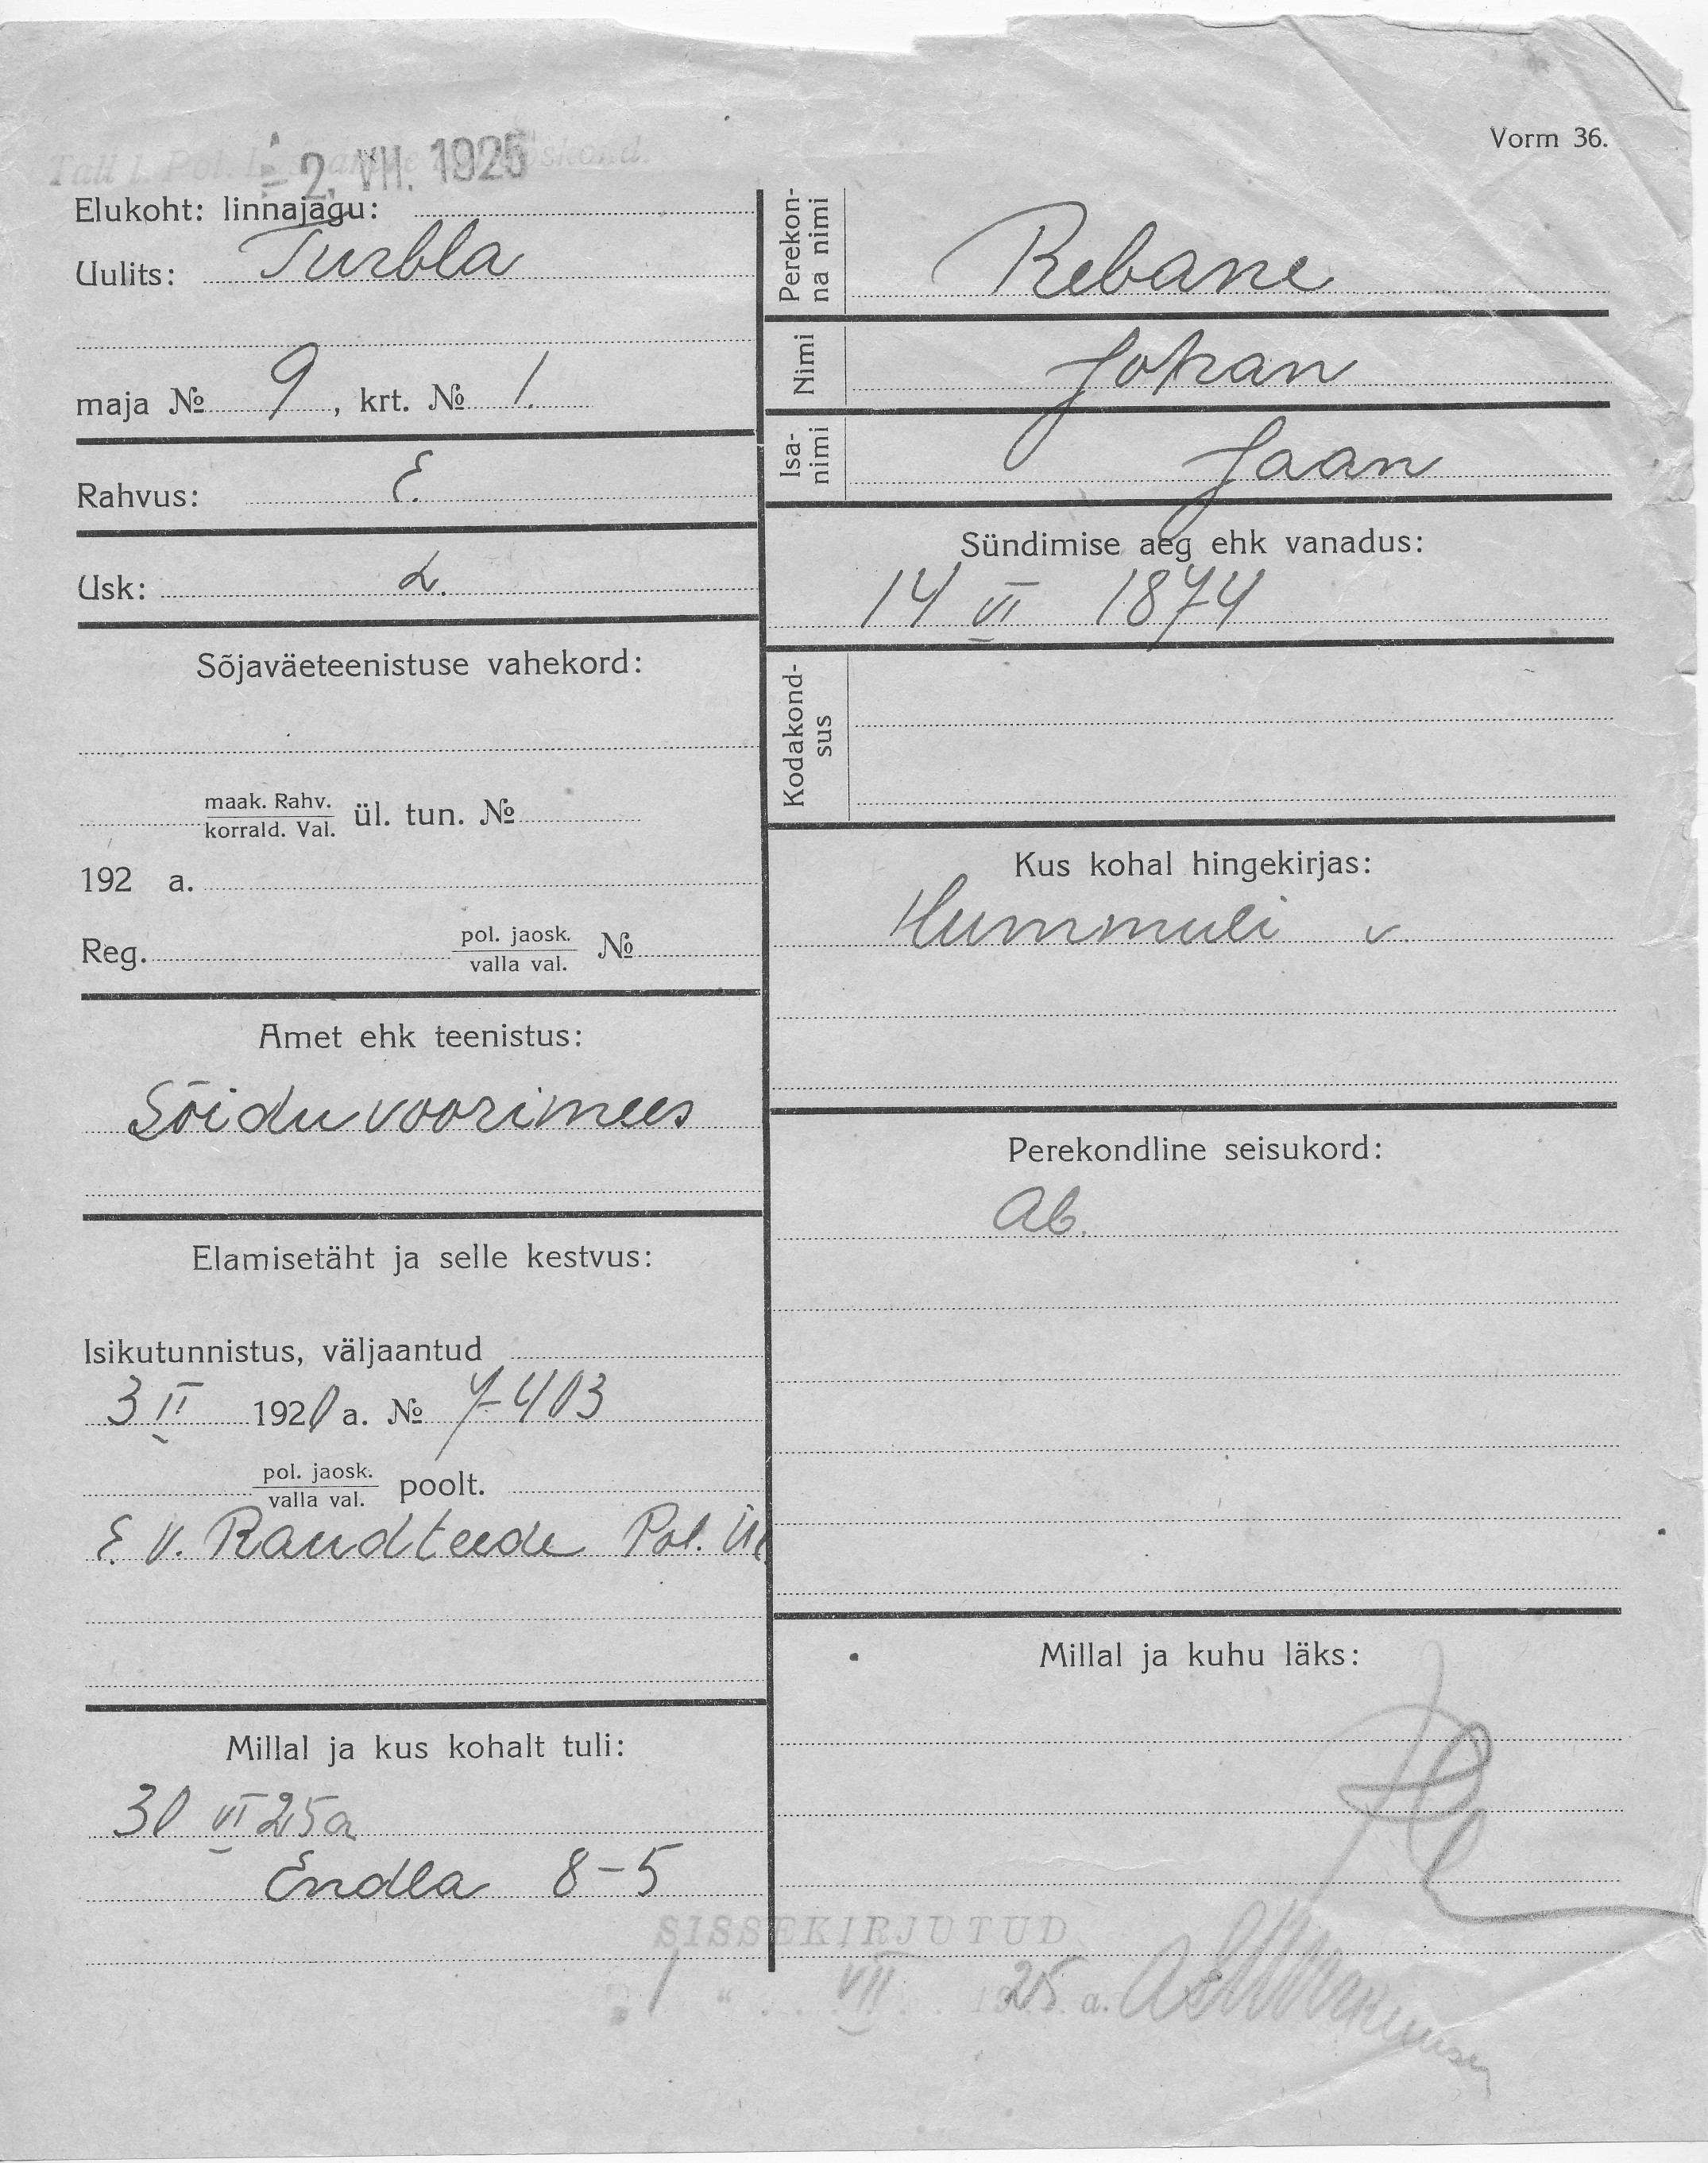 Vorm 36.
2. VII. 1925
Elukoht: linnajagu:
Uulits: Turbla
maja № 9, krt. № 1.
Rahvus: E.
Usk: L.
Sõjaväeteenistuse vahekord:
maak. Rahv.
korrald. Val. ül. tun. №
192 a.
Reg. pol. jaosk.
valla val. №
Amet ehk teenistus:
Sõidu voorimees
Elamisetäht ja selle kestvus:
Isikutunnistus, väljaantud
3 II 1920 a. № 7403
pol. jaosk.
valla val. poolt.
E. V. Raudteede Pol. Ül
Millal ja kus kohalt tuli:
30 VI 25 a
Endla 8-5
Perekon-
na nimi Rebane
Nimi Johan
Isa-
nimi Jaan
Sündimise aeg ehk vanadus:
14 VI 1874
Kodakond-
sus
Kus kohal hingekirjas:
Hummuli v.
Perekondline seisukord:
Ab.
Millal ja kuhu läks:
SISSEKIRJUTUD
1 " VII 1925. a.